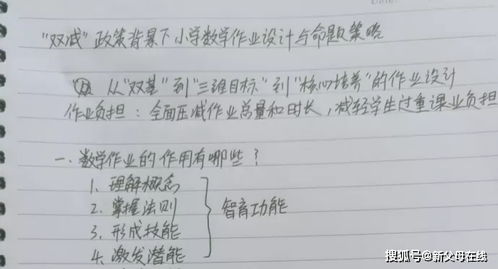 “双减”政策背景下小学数学作业设计与命题策略
从“双基”到“三维目标”到“核心培养”的作业设计
作业负担：全面压减作业总量和时长，减轻学生过重课业负担
一、数学作业的作用有哪些？
1. 理解概念
2. 掌握法则
3. 形成技能
4. 激发潜能
智育功能
搜狐号@新父母在线